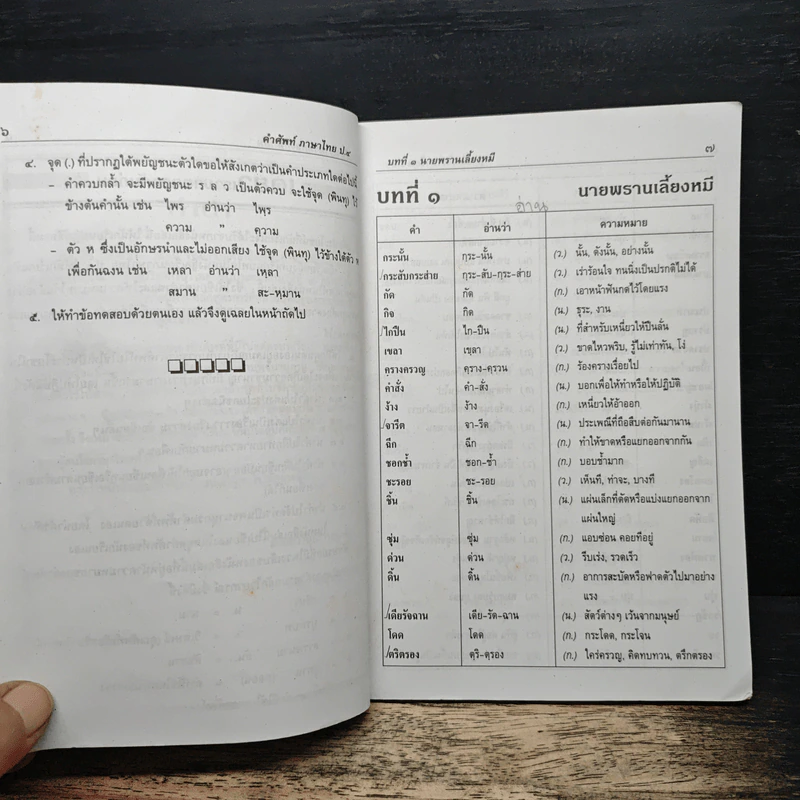 ๖
คำศัพท์ ภาษาไทย ป.๙
๔. จุด (.) ที่ปรากฏใต้พยัญชนะตัวใดขอให้สังเกตว่าเป็นคำประเภทใดต่อไปนี้
– คำควบกล้ำ จะมีพยัญชนะ ร ล ว เป็นตัวควบ จะใช้จุด (พินทุ) ไว้
ข้างต้นคำนั้น เช่น ไพร อ่านว่า ไพฺร
ความ " คฺวาม
– ตัว ห ซึ่งเป็นอักษรนำและไม่ออกเสียง ใช้จุด (พินทุ) ไว้ข้างใต้ตัว ห
เพื่อกันฉงน เช่น เหลา อ่านว่า เหฺลา
สมาน " สะ-หฺมาน
๕. ให้ทำข้อทดสอบด้วยตนเอง แล้วจึงดูเฉลยในหน้าถัดไป
บทที่ ๑ นายพรานเลี้ยงหมี
๗
บทที่ ๑ นายพรานเลี้ยงหมี
อ่าน
คำ อ่านว่า ความหมาย
กระนั้น กฺระ-นั้น (ว.) นั้น, ดังนั้น, อย่างนั้น
กระสับกระส่าย กฺระ-สับ-กฺระ-ส่าย (ว.) เร่าร้อนใจ ทนนิ่งเป็นปรกติไม่ได้
กัด กัด (ก.) เอาหน้าฟันกดไว้โดยแรง
กิจ กิด (น.) ธุระ, งาน
ไกปืน ไก-ปืน (น.) ที่สำหรับเหนี่ยวให้ปืนลั่น
เขลา เขฺลา (ว.) ขาดไหวพริบ, รู้ไม่เท่าทัน, โง่
คฺรางครวญ คฺราง-คฺรวน (ก.) ร้องครางเรื่อยไป
คำสั่ง คำ-สั่ง (น.) บอกเพื่อให้ทำหรือให้ปฏิบัติ
ง้าง ง้าง (ก.) เหนี่ยวให้อ้าออก
จารีต จา-รีด (น.) ประเพณีที่ถือสืบต่อกันมานาน
ฉีก ฉีก (ก.) ทำให้ขาดหรือแยกออกจากกัน
ชอกช้ำ ชอก-ช้ำ (ก.) บอบช้ำมาก
ชะรอย ชะ-รอย (ว.) เห็นที, ท่าจะ, บางที
ชิ้น ชิ้น (น.) แผ่นเล็กที่ตัดหรือแบ่งแยกออกจาก
แผ่นใหญ่
ซุ่ม ซุ่ม (ก.) แอบซ่อน คอยทีอยู่
ด่วน ด่วน (ว.) รีบเร่ง, รวดเร็ว
ดิ้น ดิ้น (ก.) อาการสะบัดหรือฟาดตัวไปมาอย่าง
แรง
เดียรัจฉาน เดีย-รัด-ฉาน (น.) สัตว์ต่างๆ เว้นจากมนุษย์
โดด โดด (ก.) กระโดด, กระโจน
ตริตรอง ตฺริ-ตฺรอง (ก.) ใคร่ครวญ, คิดทบทวน, ตรึกตรอง